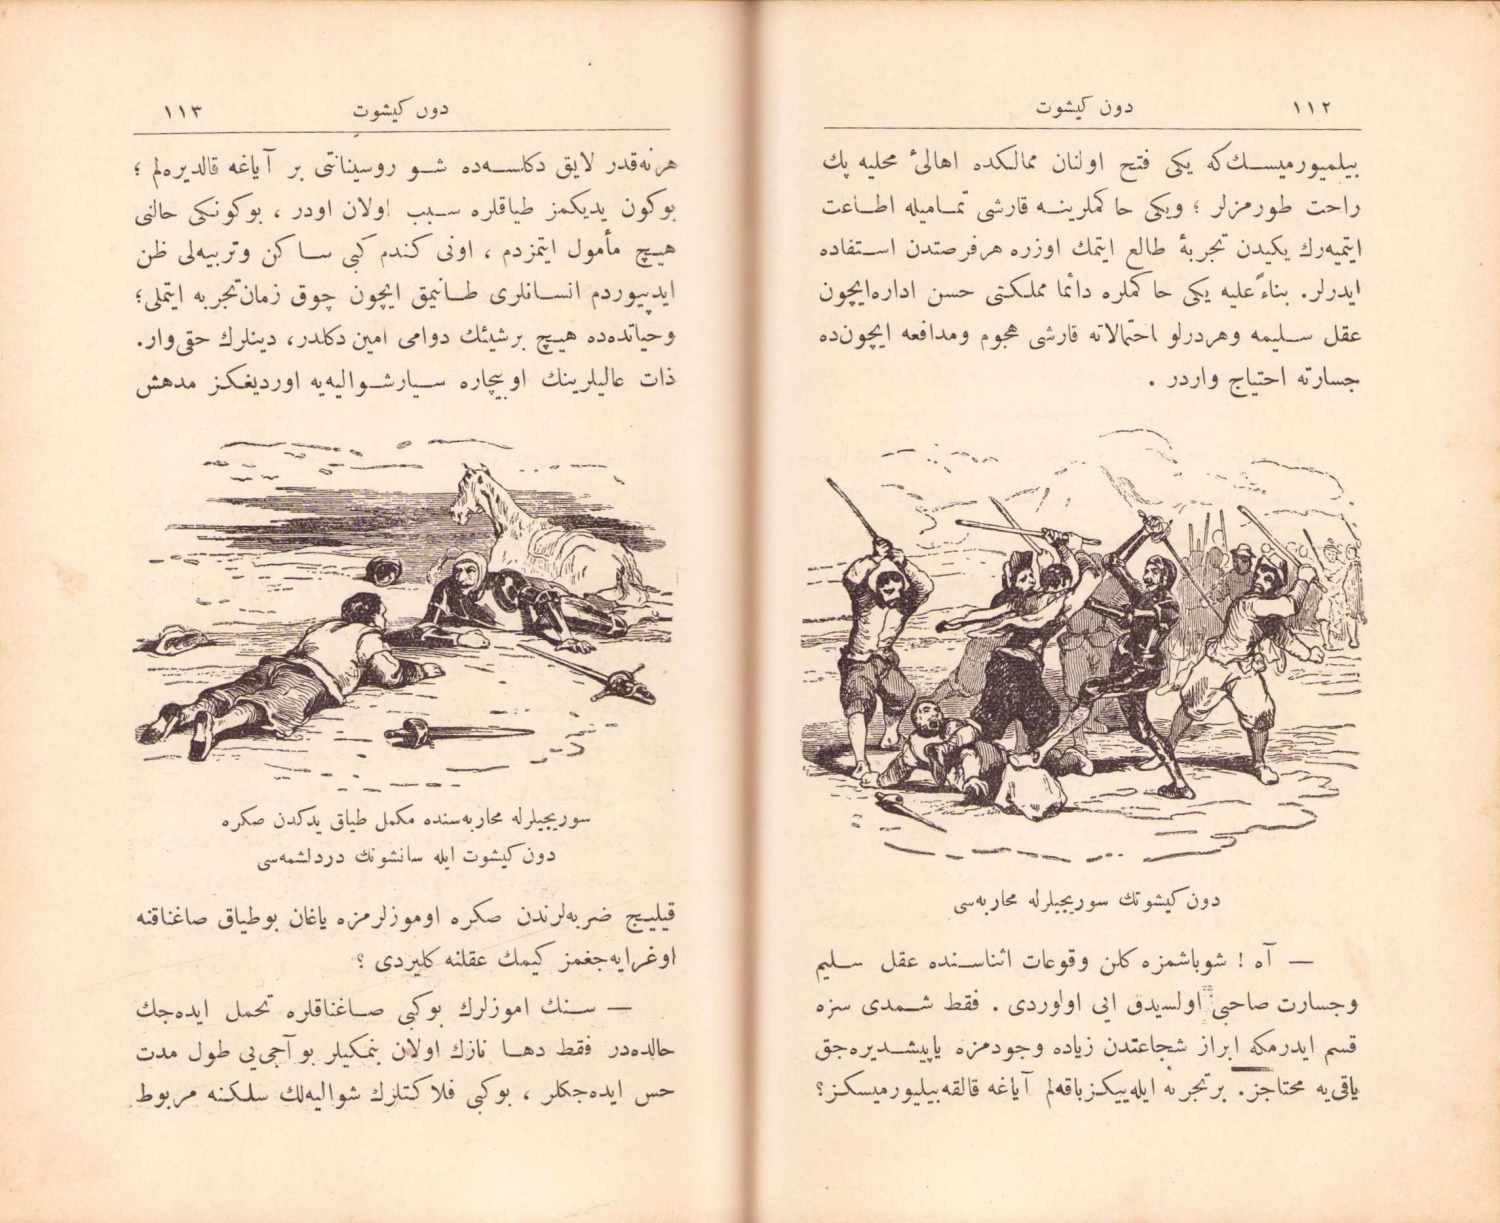 ١١٢
دون كيشوت
بيلميورميسك كه يكى فتح اولنان ممالكده اهالئ محليه پك
راحت طورمزلر ؛ ويكى حاكملرينه قارشى تماميله اطاعت
ايتميه‌رك يكيدن تجربۀ طالع ايتمك اوزره هرفرصتدن استفاده
ايدرلر. بناءً عليه يكى حاكملره دائما مملكتى حسن اداره ايچون
عقل سليمه وهردرلو احتمالاته قارشى هجوم ومدافعه ايچون ده
جسارته احتياج واردر .
دون كيشوتك سوريجيلرله محاربه‌سى
— آه ! شوباشمزه كلن وقوعات اثناسنده عقل سليم
وجسارت صاحبى اولسيدق ايى اولوردى . فقط شمدى سزه
قسم ايدرمكه ابراز شجاعتدن زياده وجودمزه ياپيشديره‌جق
ياقى‌يه محتاجز. برتجربه ايله‌ييكز باقه‌لم آياغه قالقه بيليورميسكز؟
دون كيشوت
١١٣
هرنه‌قدر لايق دكلسه‌ده شو روسينانتى بر آياغه قالديره‌لم ؛
بوكون يديكمز طياقلره سبب اولان اودر ، بوكونكى حالنى
هيچ مأمول ايتمزدم ، اونى كندم كبى ساكن وتربيه‌لى ظن
ايدييوردم انسانلرى طانيمق ايچون چوق زمان تجربه ايتملى؛
وحياتده‌ده هيچ برشيئك دوامى امين دكلدر، دينلرك حقى وار.
ذات عاليلرينك اوبيچاره سيارشواليه‌يه اورديغكز مدهش
سوريجيلرله محاربه‌سنده مكمل طياق يدكدن صكره
دون كيشوت ايله سانشونك دردلشمه‌سى
قيليج ضربه‌لرندن صكره اوموزلرمزه ياغان بوطياق صاغناقنه
اوغرايه‌جغمز كيمك عقلنه كليردى ؟
— سنك اموزلرك بوكبى صاغناقلره تحمل ايده‌جك
حالده‌در فقط دها نازك اولان بنمكيلر بو آجى‌يى طول مدت
حس ايده‌جكلر ، بوكبى فلاكتلرك شواليه‌لك سلكنه مربوط